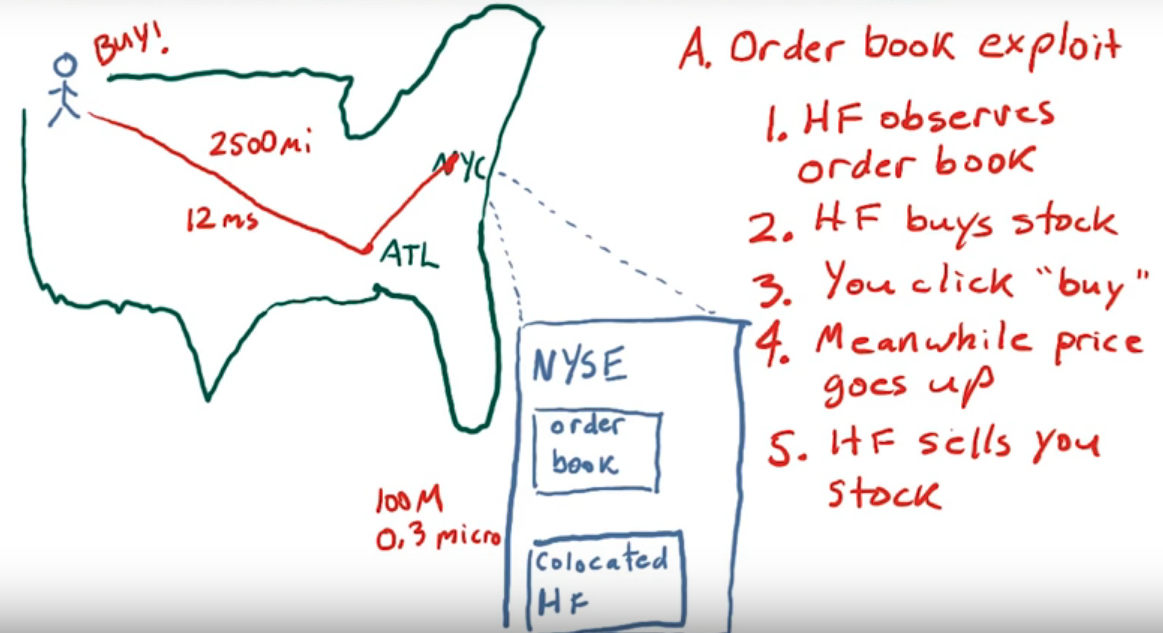 BUY!
2500mi
12ms
NYC
ATL
NYSE
order
book
100M
0,3 micro
Colocated
HF
A. Order book exploit
1. HF observes
order book
2. HF buys stock
3. You click "buy"
4. Meanwhile price
goes up
5. HF sells you
stock